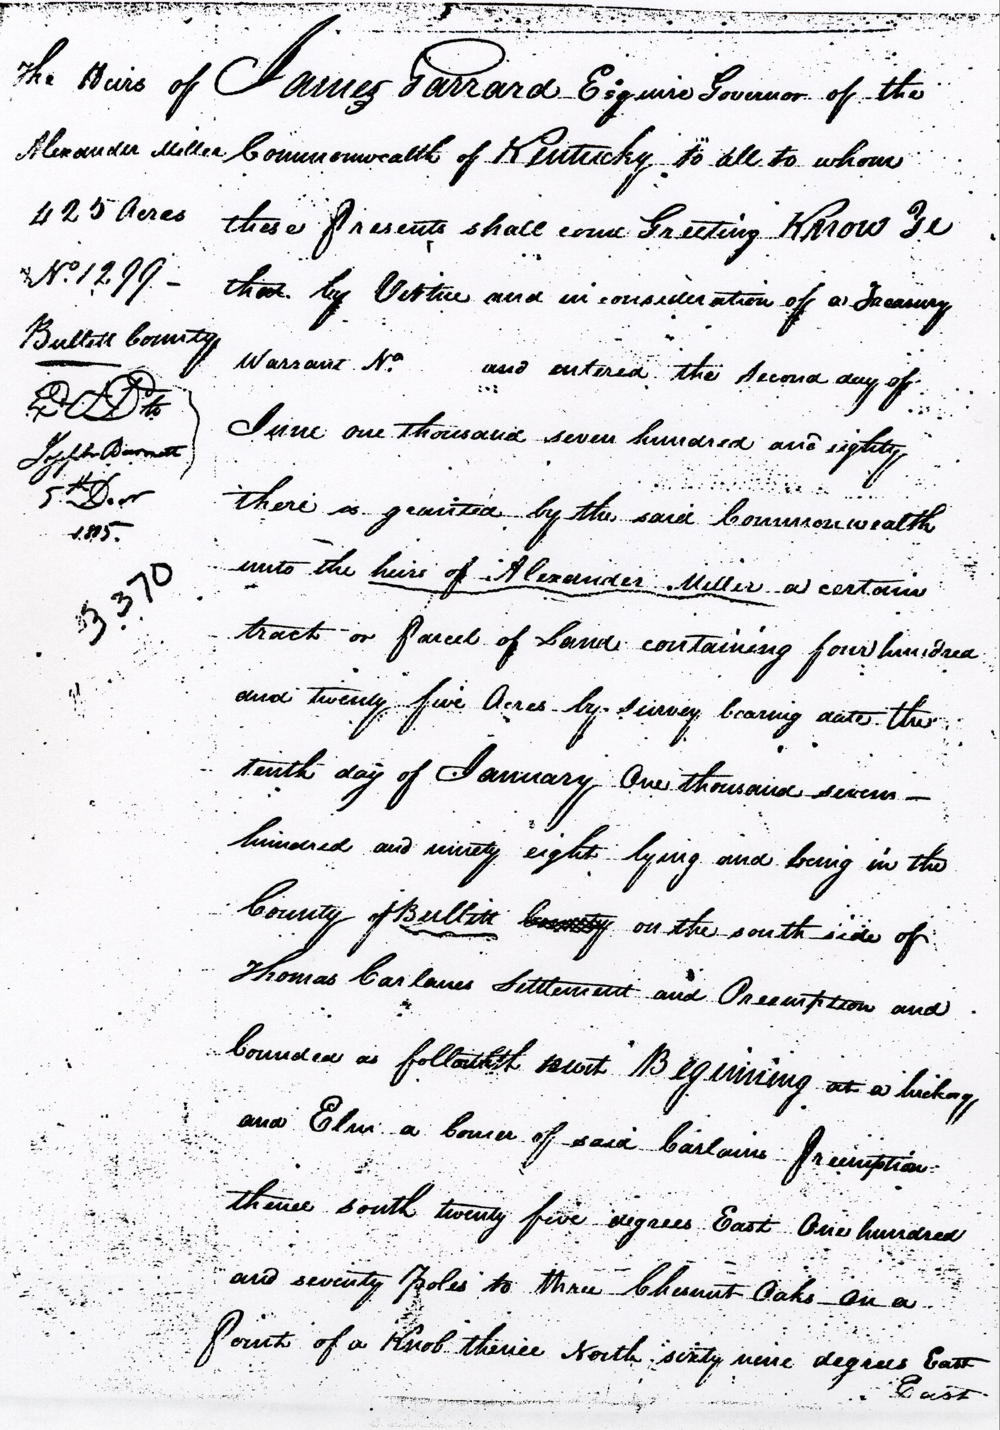 The Heirs of
Alexander Miller
425 Acres
No. 1299 -
Bullitt County
Dd to
Joseph Barnett
5th Decr
1805.
3370
James Garrard Esquire Governor of the
Commonwealth of Kentucky to all to whom
these Presents shall come Greeting Know Ye
that by Virtue and in consideration of a Treasury
Warrant No. and entered the second day of
June one thousand seven hundred and eighty
there is granted by the said Commonwealth
unto the heirs of Alexander Miller a certain
tract or Parcel of Land containing four hundred
and twenty five Acres by survey bearing date the
tenth day of January One thousand seven -
hundred and ninety eight lying and being in the
County of Bullitt County on the south side of
Thomas Carlanes Settlement and Preemption and
bounded as followeth Beginning at a hickory
and Elm a Corner of said Carlains Preemption
thence south twenty five degrees East One hundred
and seventy Poles to three Chesnut Oaks on a
Point of a Knob thence North sixty nine degrees East
East